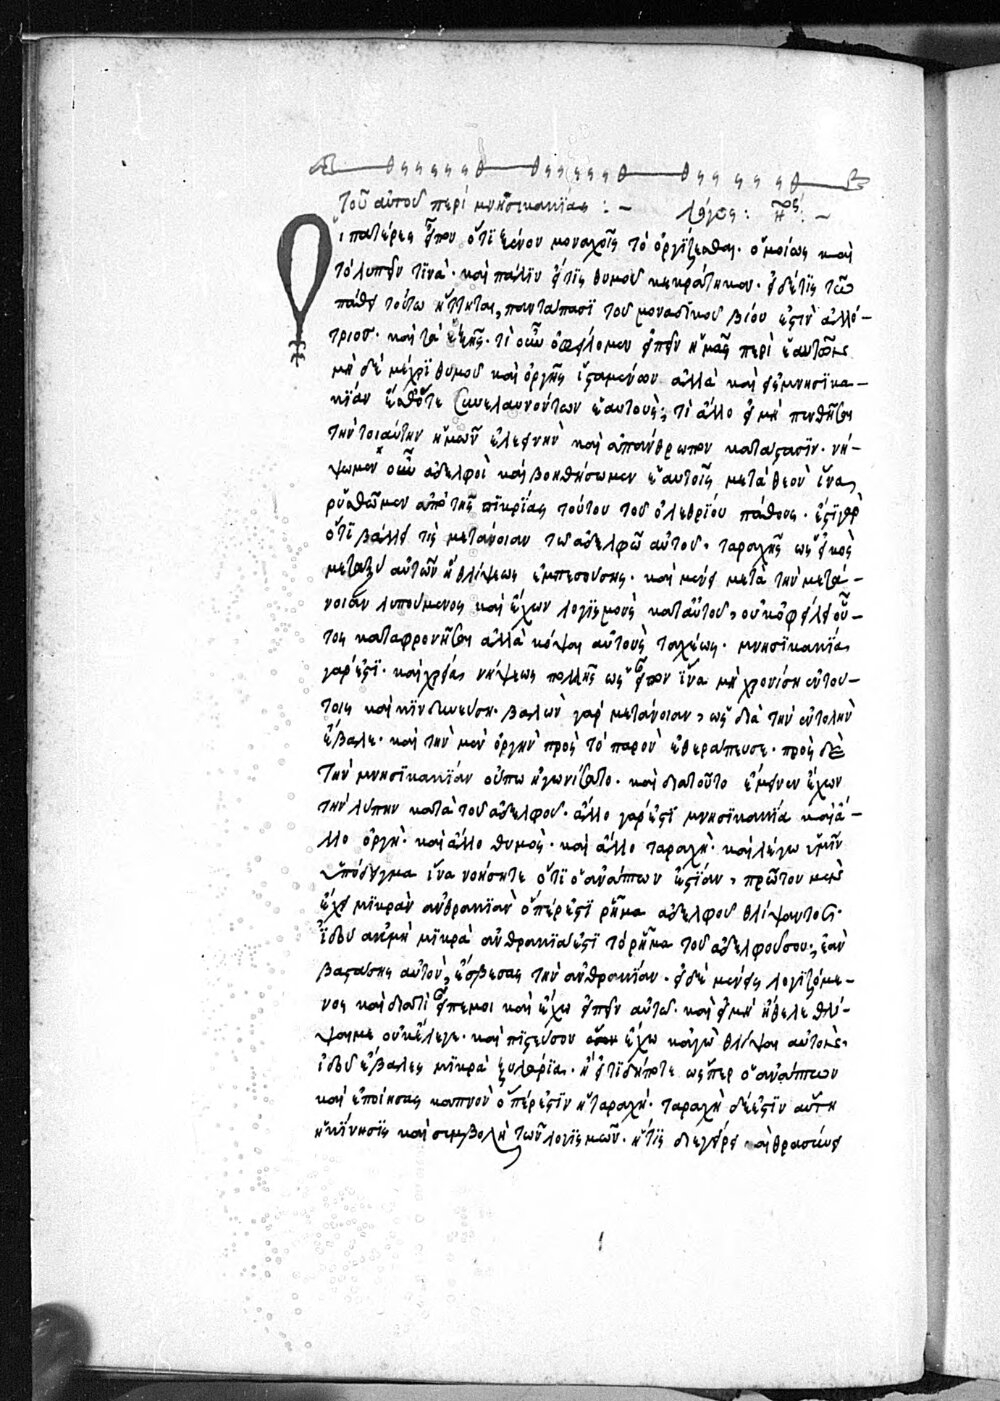 Τοῦ αὐτοῦ περὶ μνησικακίας : ~ Λόγος : η΄ος : ~
Οἱ πατέρες εἶπον ὅτι ξένον μοναχοῖς τὸ ὀργίζεσθαι. ὁμοίως καὶ
τὸ λυπεῖν τινὰ. καὶ πάλιν εἴ τις θυμοῦ κεκράτηκεν. εἰ δέ τις τῶ
πάθει τούτω ἥττηται, πανταπασι τοῦ μοναδικοῦ βίου ἐστὶν ἀλλό-
τριος. καὶ τὰ ἑξῆς. τί οὖν ὀφείλομεν εἰπεῖν ἡμεῖς περὶ ἑαυτῶν
μὴ δὲ μέχρι θυμοῦ καὶ ὀργῆς ἱσταμένων ἀλλὰ καὶ εἰς μνησικα-
κίαν ἔσθ' ὅτε συνελαυνούντων ἑαυτούς; τί ἄλλο εἰ μὴ πενθῆσαι
τὴν τοιαύτην ἡμῶν ἐλεεινὴν καὶ ἀπάνθρωπον κατάστασιν. νή-
ψωμεν οὖν ἀδελφοὶ καὶ βοηθήσωμεν ἑαυτοῖς μετὰ θεὸν ἵνα
ῥυσθῶμεν ἀπὸ τῆς πικρίας τούτου τοῦ ὀλεθρίου πάθους. ἔστι γὰρ
ὅτι βάλλει τις μετάνοιαν τῶ ἀδελφῶ αὐτοῦ, ταραχῆς ὡς εἰκὸς
μεταξὺ αὐτῶν ἢ θλίψεως ἐμπεσούσης. καὶ μένει μετὰ τὴν μετά-
νοιαν λυπούμενος καὶ ἔχων λογισμοὺς κατ αὐτοῦ, οὐκ ὀφείλει οὖ-
τος καταφρονῆσαι ἀλλὰ κόψαι αὐτοὺς ταχέως. μνησικακία
γάρ ἐστι. καὶ χρεία νήψεως πολλῆς ὡς εἶπον ἵνα μὴ χρονίση ἐν τού-
τοις καὶ κινδυνεύση. βαλὼν γὰρ μετάνοιαν, ὡς διὰ τὴν ἐντολὴν
ἔβαλε. καὶ τὴν μὲν ὀργὴν πρὸς τὸ παρὸν ἐθεράπευσε. πρὸς δὲ
τὴν μνησικακίαν οὔπω ἠγωνίσατο. καὶ διὰ τοῦτο ἔμεινεν ἔχων
τὴν λύπην κατὰ τοῦ ἀδελφοῦ. ἄλλο γάρ ἐστι μνησικακία καὶ ἄ-
λλο ὀργή. καὶ ἄλλο θυμὸς. καὶ ἄλλο ταραχή. καὶ λέγω ὑμῖν
ὑπόδειγμα ἵνα νοήσητε ὅτι ὁ ἀνάπτων ἑστίαν, πρῶτον μὲν
ἔχει μικρὰν ἀνθρακιὰν ὅπέρ ἐστι ῥῆμα ἀδελφοῦ θλίψαντος.
ἰδοῦ ἀκμὴ μικρὰ ἀνθρακιά ἐστι τὸ ῥῆμα τοῦ ἀδελφοῦ σου, ἐὰν
βαστάσης αὐτὸν, ἔσβεσας τὴν ἀνθρακιάν. εἰ δὲ μένεις λογιζόμε-
νος καὶ διατί εἶπέ μοι καὶ ἔχω εἰπεῖν αὐτῶ. καὶ εἰ μὴ ἤθελε θλί-
ψαι με οὐκ ἔλεγε. καὶ πίστευσον ἔχω κἀγὼ θλίψαι αὐτόν.
ἰδοῦ ἔβαλες μικρὰ ξυλάρια. ἢ ὁτιδήποτε ὥσπερ ὁ ἀνάπτων
καὶ ἐποίησας καπνὸν ὅπέρ ἐστιν ἡ ταραχή. ταραχὴ δέ ἐστιν αὕτη
ἡ κίνησις καὶ συμβολὴ τῶν λογισμῶν. ἥτις διεγείρει καὶ θρασύνει